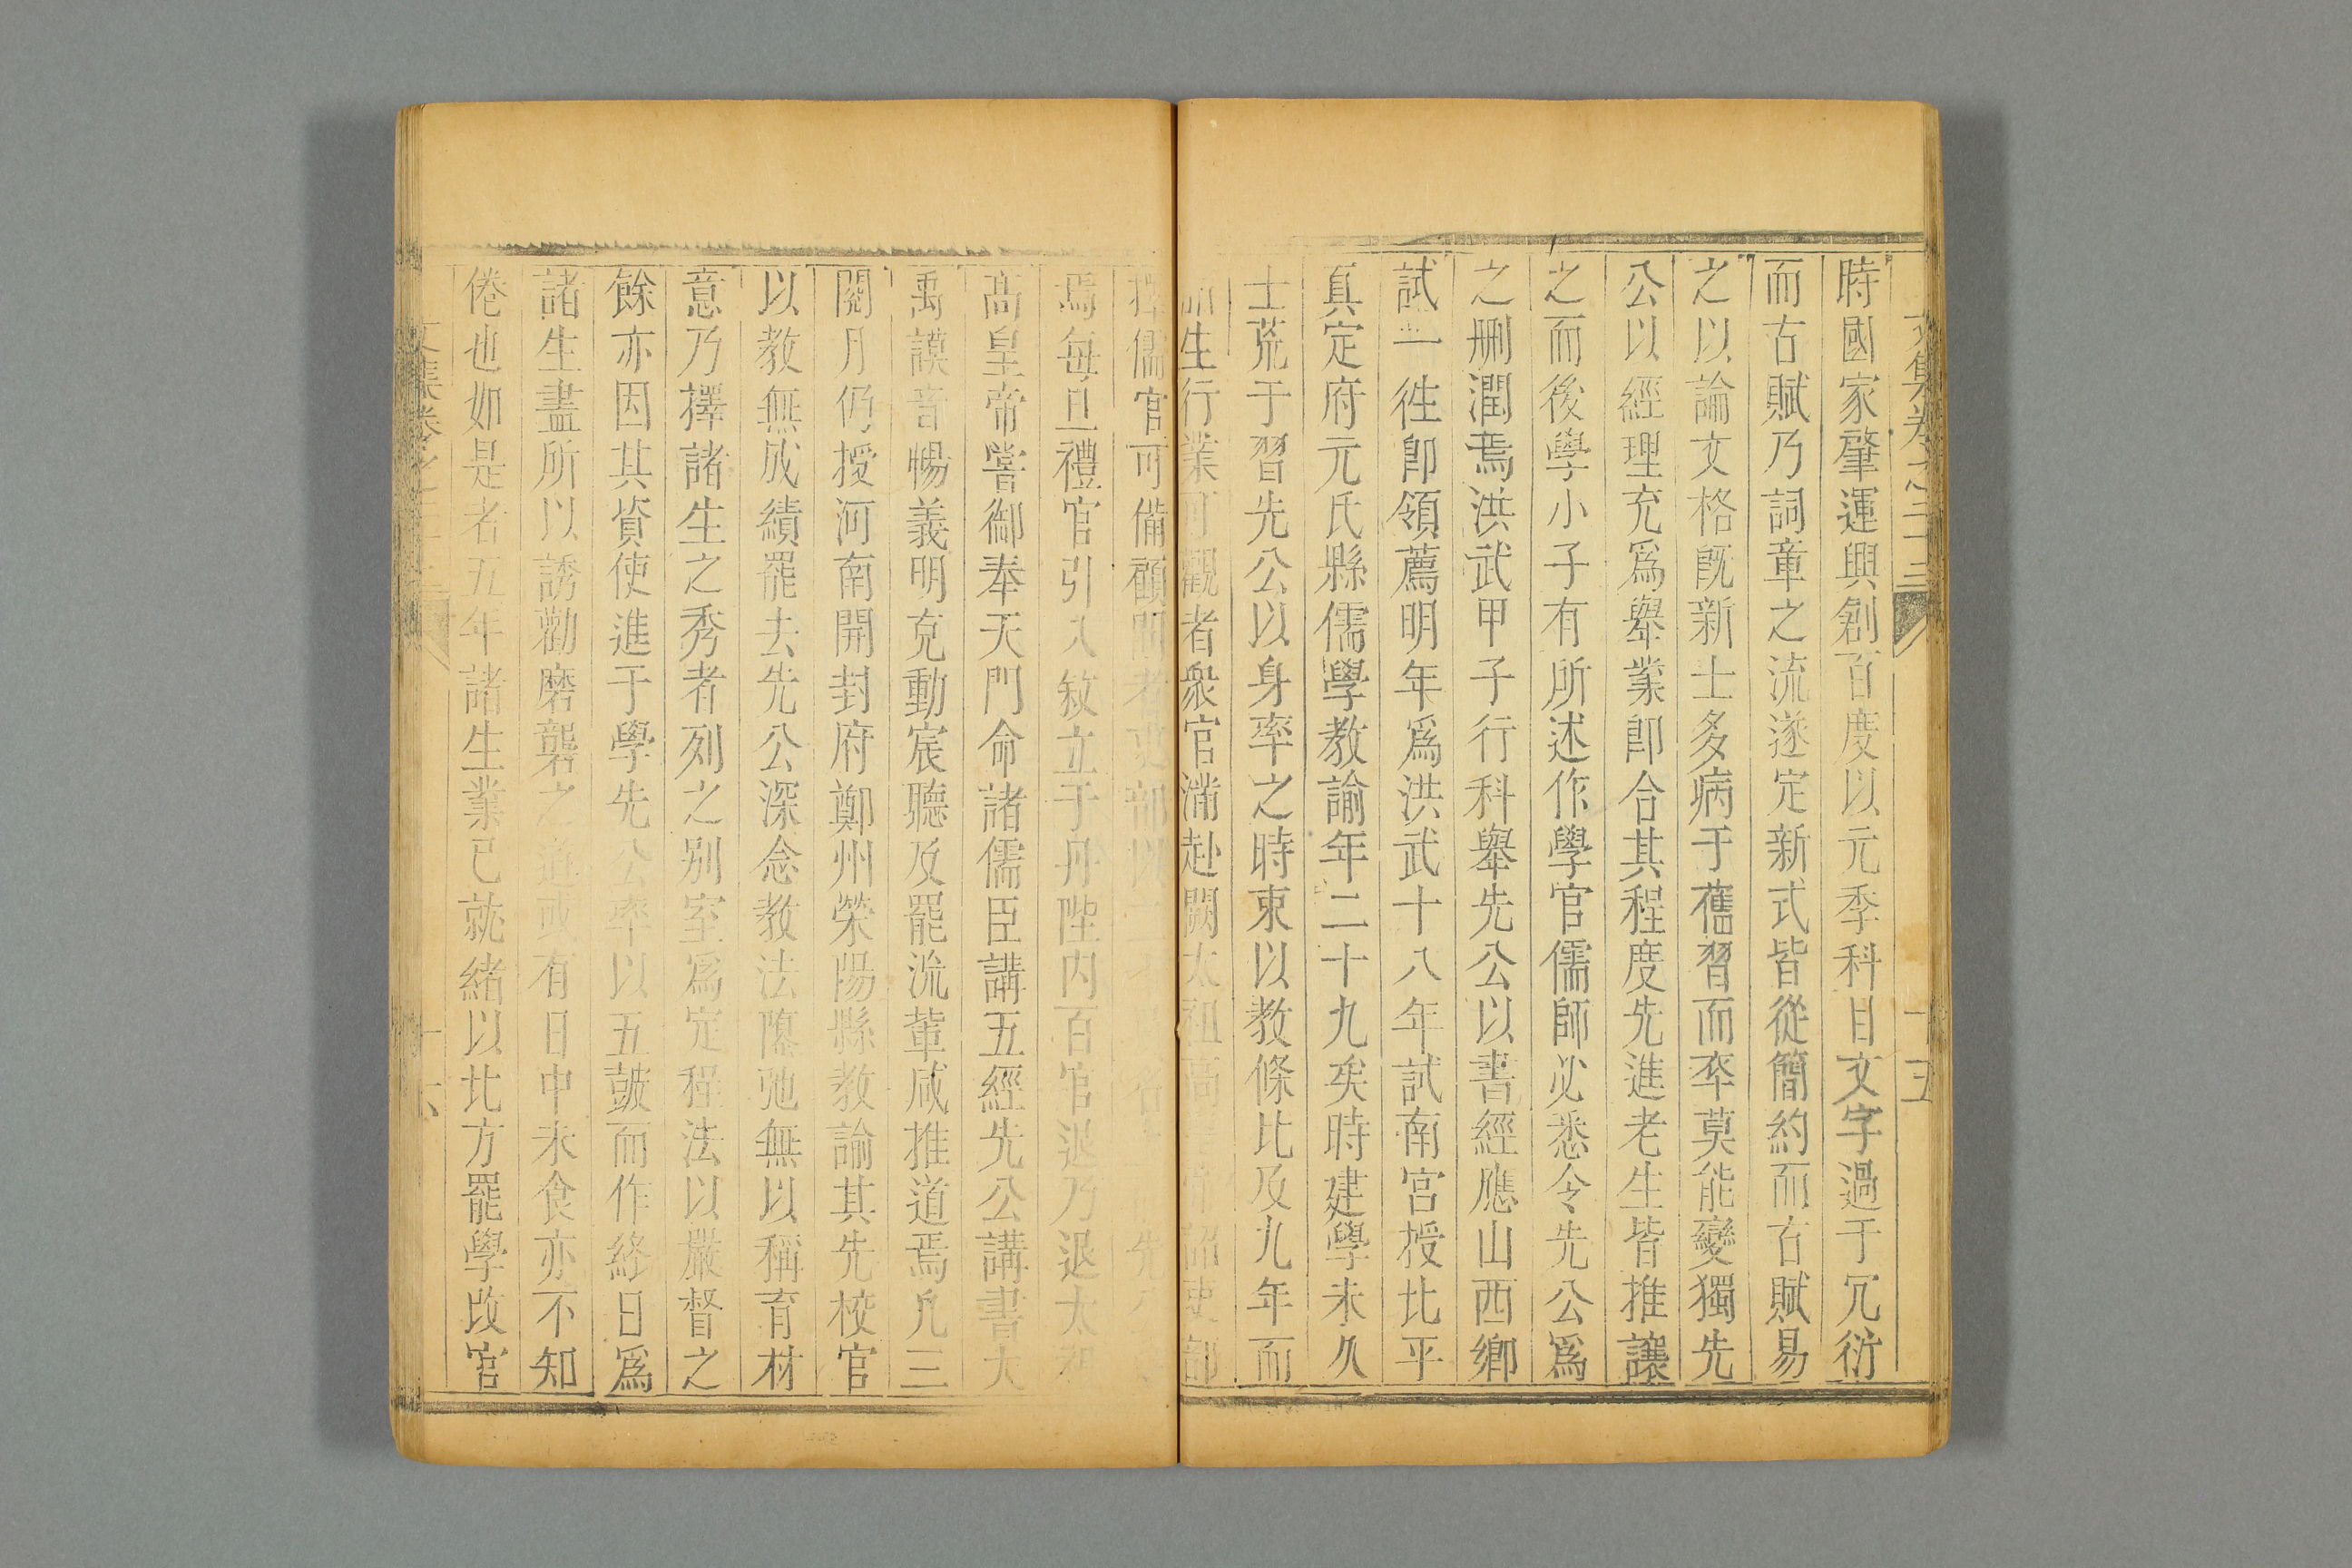 文集卷之二十三
十五
時國家肇運興創百度以元季科目文字過于冗衍
而古賦乃詞章之流遂定新式皆從簡約而古賦易
之以論文格旣新士多病于舊習而卒莫能變獨先
公以經理充爲舉業卽合其程度先進老生皆推讓
之而後學小子有所述作學官儒師必悉令先公爲
之刪潤焉洪武甲子行科舉先公以書經應山西鄉
試一徃卽領薦明年爲洪武十八年試南宮授北平
真定府元氏縣儒學教諭年二十九矣時建學未久
士荒于習先公以身率之時東以教條比及九年而
諸生行業可觀者衆官滿赴闕太祖高皇帝詔吏部
擇儒官可備顧問者吏部以
焉每旦禮官引入敘立于丹陛内百官退乃退太祖
高皇帝嘗御奉天門命諸儒臣講五經先公講書大
禹謨音暢義明克動宸聽及罷流輩咸推道焉凡三
閱月仍授河南開封府鄭州滎陽縣教諭其先校官
以教無成績罷去先公深念教法隳弛無以稱育材
意乃擇諸生之秀者列之别室爲定程法以嚴督之
餘亦因其資使進于學先公率以五皷而作終日爲
諸生盡所以誘勸磨礱之道或有日中未食亦不知
倦也如是者五年諸生業已就緒以比方罷學改官
文集卷之二十三
十六